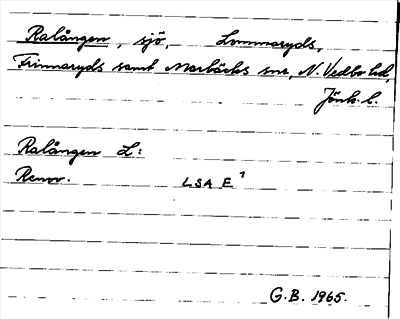 Ralången, sjö, Lommaryds,
Frinnaryds samt Marbäcks snr, N. Vedbo hd,
Jönk. l.
Ralången L:
Renov. LSA E¹
G.B. 1965.